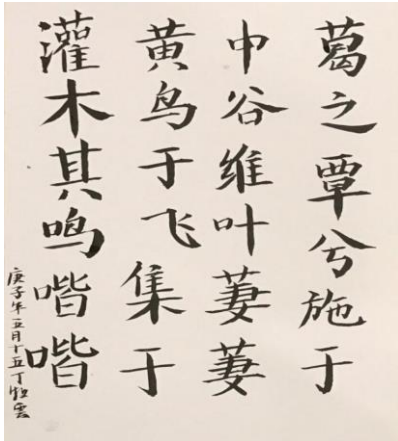 葛之覃兮施于
中谷维叶萋萋
黄鸟于飞集于
灌木其鸣喈喈
庚子年五月十五丁